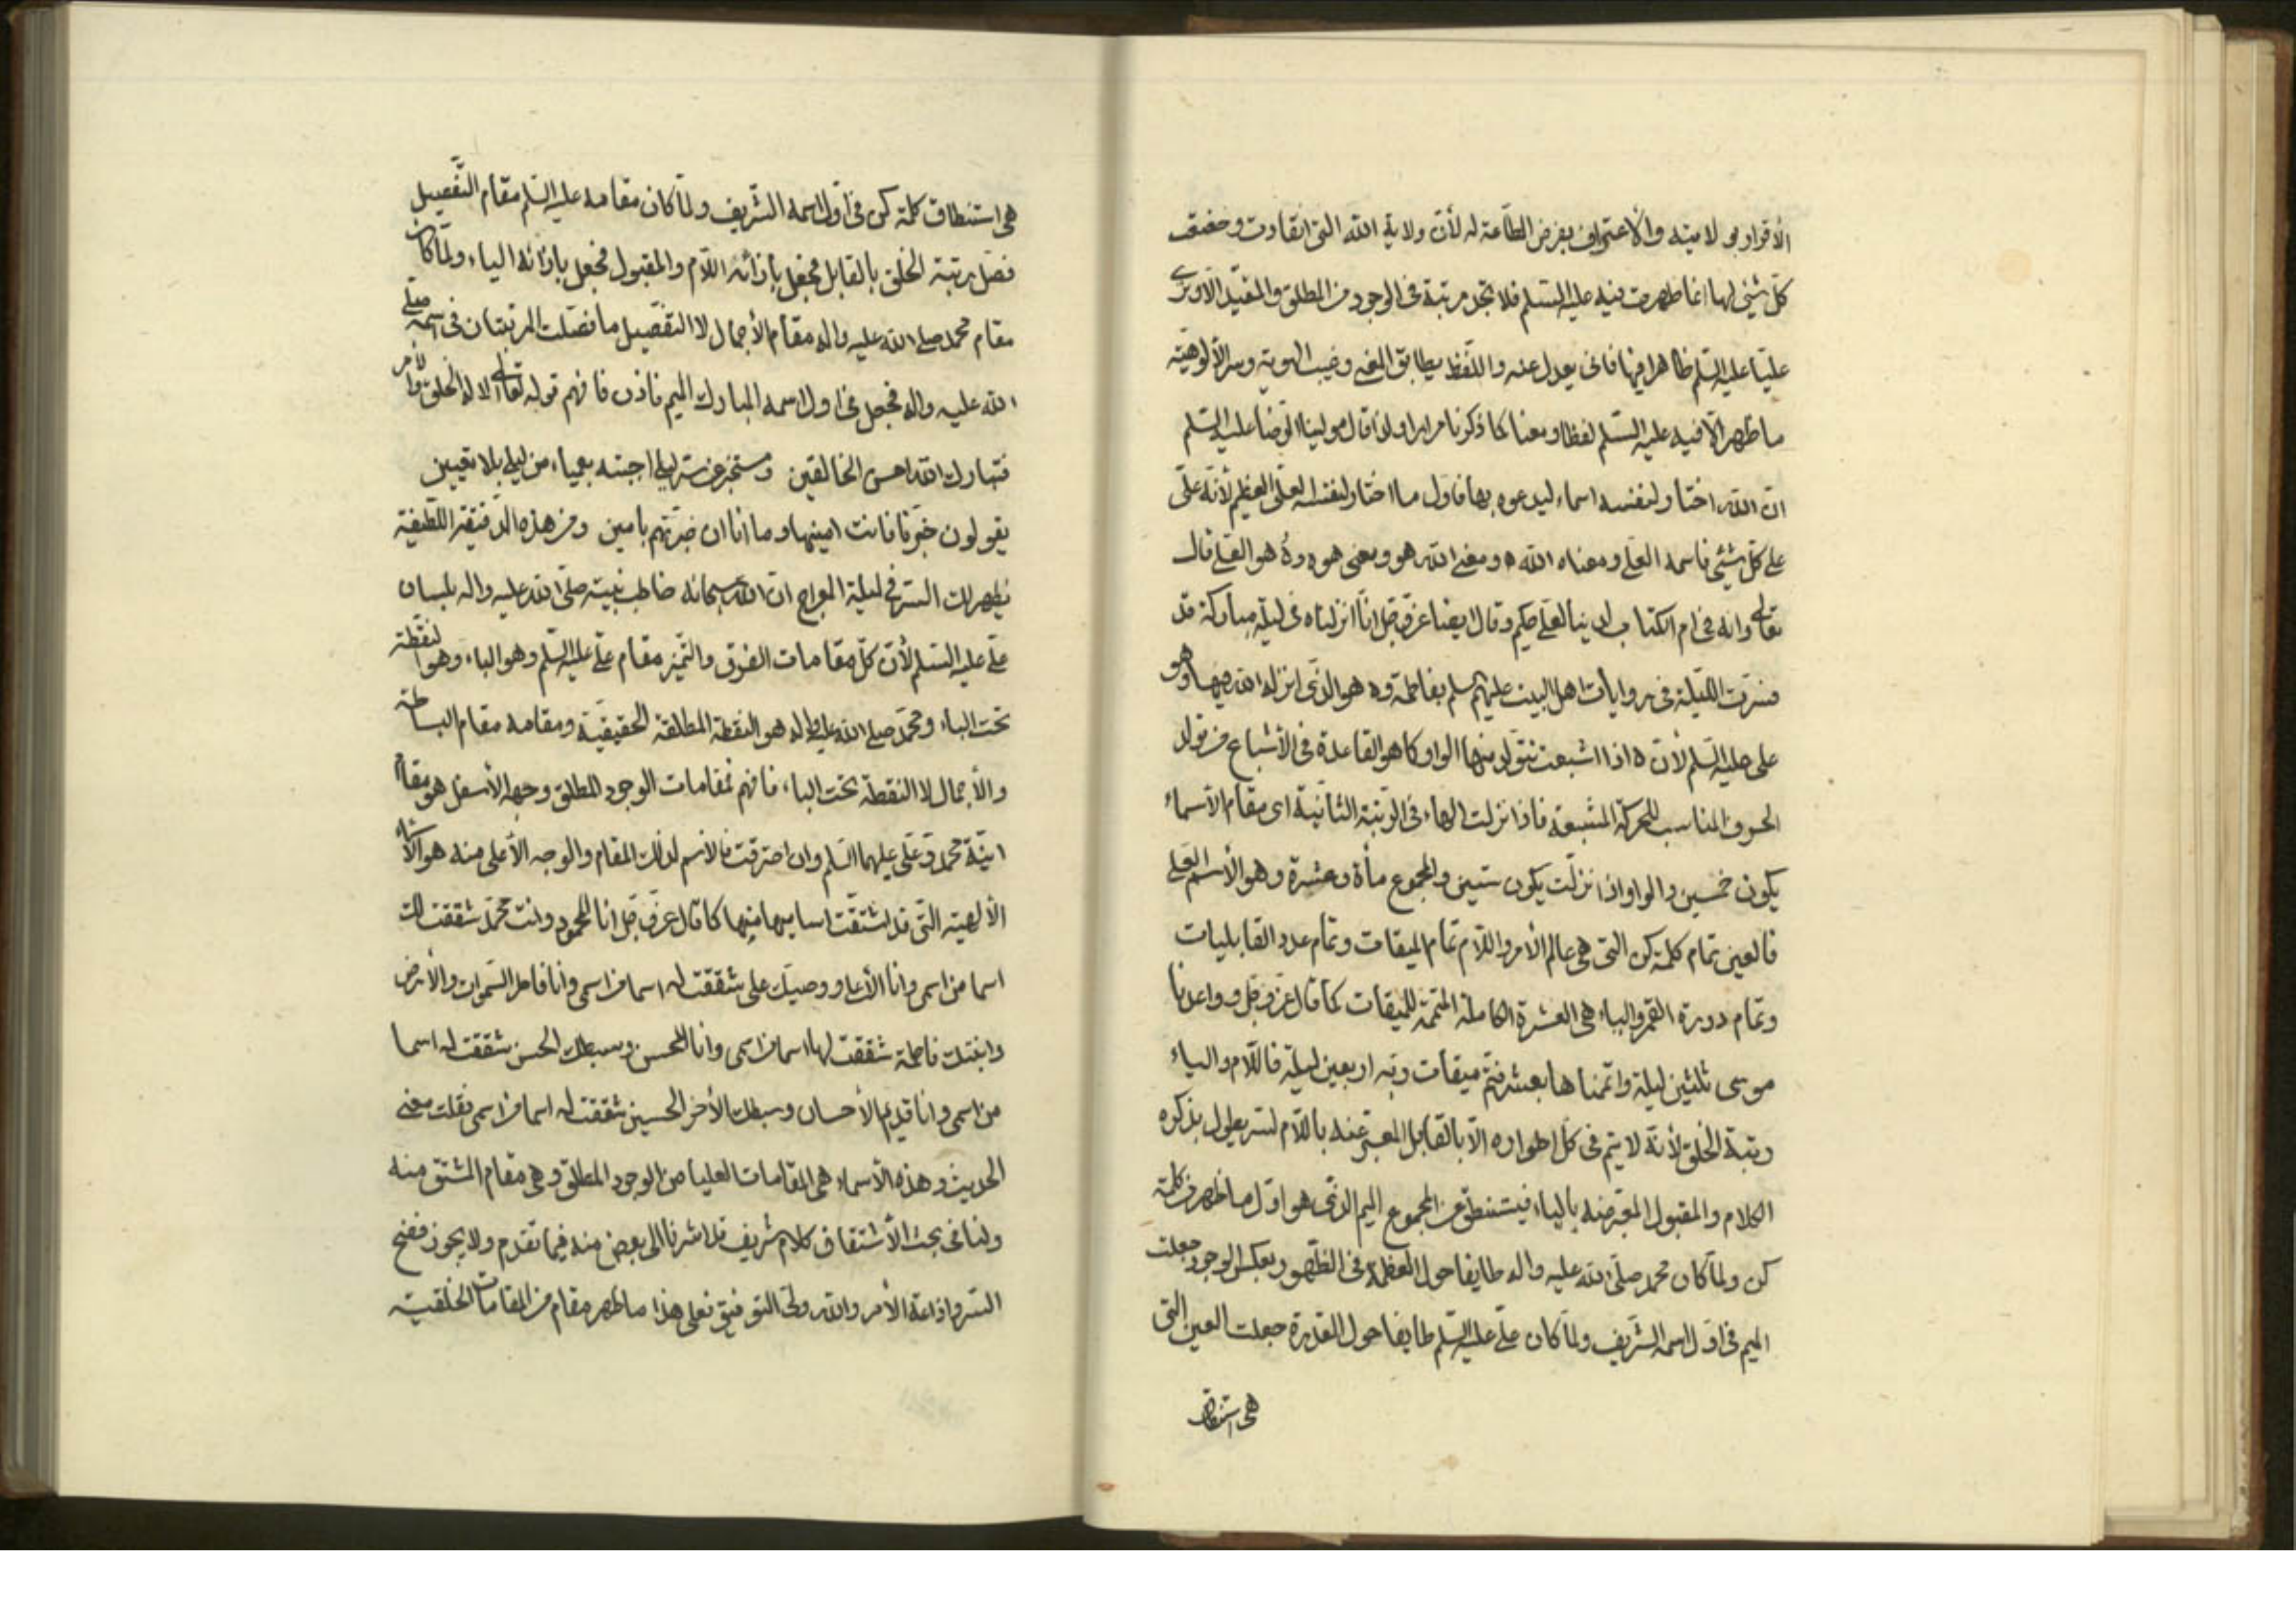 الأقرار بولايته والاعتراف بفرض الطاعة له لأن ولاية الله التى انقادت وخضعت
كل شئ لها انما ظهرت فيه عليه السلم فلا تجد مرتبة فى الوجود من المطلق والمقيد الا وترى
عليا عليه السلم ظاهرا فيها فانى يعدل عنه واللفظ يطابق المعنى وغيب الهوية وسر الألوهية
ما ظهر الا فيه عليه السلم لفظا ومعنا كما ذكرنا مرارا ولذا قال مولينا الرضا عليه السلم
ان الله اختار لنفسه اسماء ليدعوه بها فاول ما اختار لنفسه العلى العظيم لأنه على
على كل شئ فاسمه العلى ومعناه الله ه ومعنى الله هو ومعنى هو ه وه هو العلى قال
تعالى وانه فى ام الكتاب لدينا لعلى حكيم وقال ايضا عز وجل انا انزلناه فى ليلة مباركة قد
فسرت الليلة فى روايات اهل البيت عليهم السلم بفاطمة وه هو الذى انزله الله فيها وهو
على عليه السلم لأن ه اذا اشبعت تتولد منها الواو كما هو القاعدة فى الأشباع من تولد
الحروف المناسب للحركة المشبعة فاذا نزلت الهاء فى الرتبة الثانية اى مقام الاسماء
يكون خمسين والواو اذا نزلت يكون ستين والمجموع مأة وعشرة وهو الأسم العلى
فالعين تمام كلمة كن التى هى عالم الأمر واللام تمام الميقات وتمام عدد القابليات
وتمام دورة القمر والياء هى العشرة الكاملة المتممة للميقات كما قال عز وجل وواعدنا
موسى ثلثين ليلة واتممناها بعشر فتم ميقات ربه اربعين ليلة فاللام والياء
رتبة الخلق لأنه لا يتم فى كل اطواره الا بالقابل المعبر عنه باللام لسر يطول بذكره
الكلام والمقبول المعبر عنه بالياء فيستنطق عن المجموع الميم الذى هو اول ما ظهر من كلمة
كن ولما كان محمد صلى الله عليه واله طايفا حول العظمة فى الظهور بعكس الوجود جعلت
الميم فى اول اسمه الشريف ولما كان على عليه السلم طايفا حول القدرة جعلت العين التى
هى استنطاق
هى استنطاق كلمة كن فى اول اسمه الشريف ولما كان مقامه عليه السلم مقام التفصيل
فصل رتبة الخلق بالقابل فجعل بازائه اللام والمقبول فجعل بازائه الياء ولما كان
مقام محمد صلى الله عليه واله مقام الأجمال لا التفصيل ما فصلت المرتبتان فى اسمه صلى
الله عليه واله فجعل فى اول اسمه المبارك الميم فاذن فافهم قوله تعالى الا له الخلق والأمر
فتبارك الله احسن الخالقين ومستخبر عن سر ليلى اجبته بعمياء من ليلى بلا تعيين
يقولون خبرنا فانت امينها وما انا ان خبرتهم بامين ومن هذه الدقيقة اللطيفة
يظهر لك السر فى ليلة المعراج ان الله سبحانه خاطب نبيه صلى الله عليه واله بلسان
على عليه السلم لأن كل مقامات الفرق والتميز مقام على عليه السلم وهو الباء وهو النقطة
تحت الباء ومحمد صلى الله عليه واله هو النقطة المطلقة الحقيقية ومقامه مقام البساطة
والأجمال لا النقطة تحت الباء فافهم فمقامات الوجود المطلق وجهه الأسفل هو مقام
انية محمد وعلى عليهما السلم وان احترقت فالاسم لذلك المقام والوجه الأعلى منه هو الأسماء
الألهية التى قد اشتقت اساميها منها كما قال عز وجل انا المحمود وانت محمد شققت لك
اسما من اسمى وانا الأعلى ووصيك على شققت له اسما من اسمى وانا فاطر السموات والأرض
وابنتك فاطمة شققت لها اسما من اسمى وانا المحسن وسبطك الحسن شققت له اسما
من اسمى وانا قديم الأحسان وسبطك الأخر الحسين شققت له اسما من اسمى نقلت معنى
الحديث وهذه الأسماء هى المقامات العليا من الوجود المطلق وهى مقام المشتق منه
ولنا فى بحث الأشتقاق كلام شريف قد اشرنا الى بعض منه فيما تقدم ولا يجوز فضح
السر واذاعة الأمر والله ولى التوفيق فعلى هذا ما ظهر مقام من المقامات الخلقية